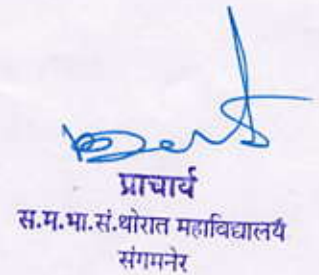 प्राचार्य
स.म.भा.सं.थोरात महाविद्यालयै
संगमनेर